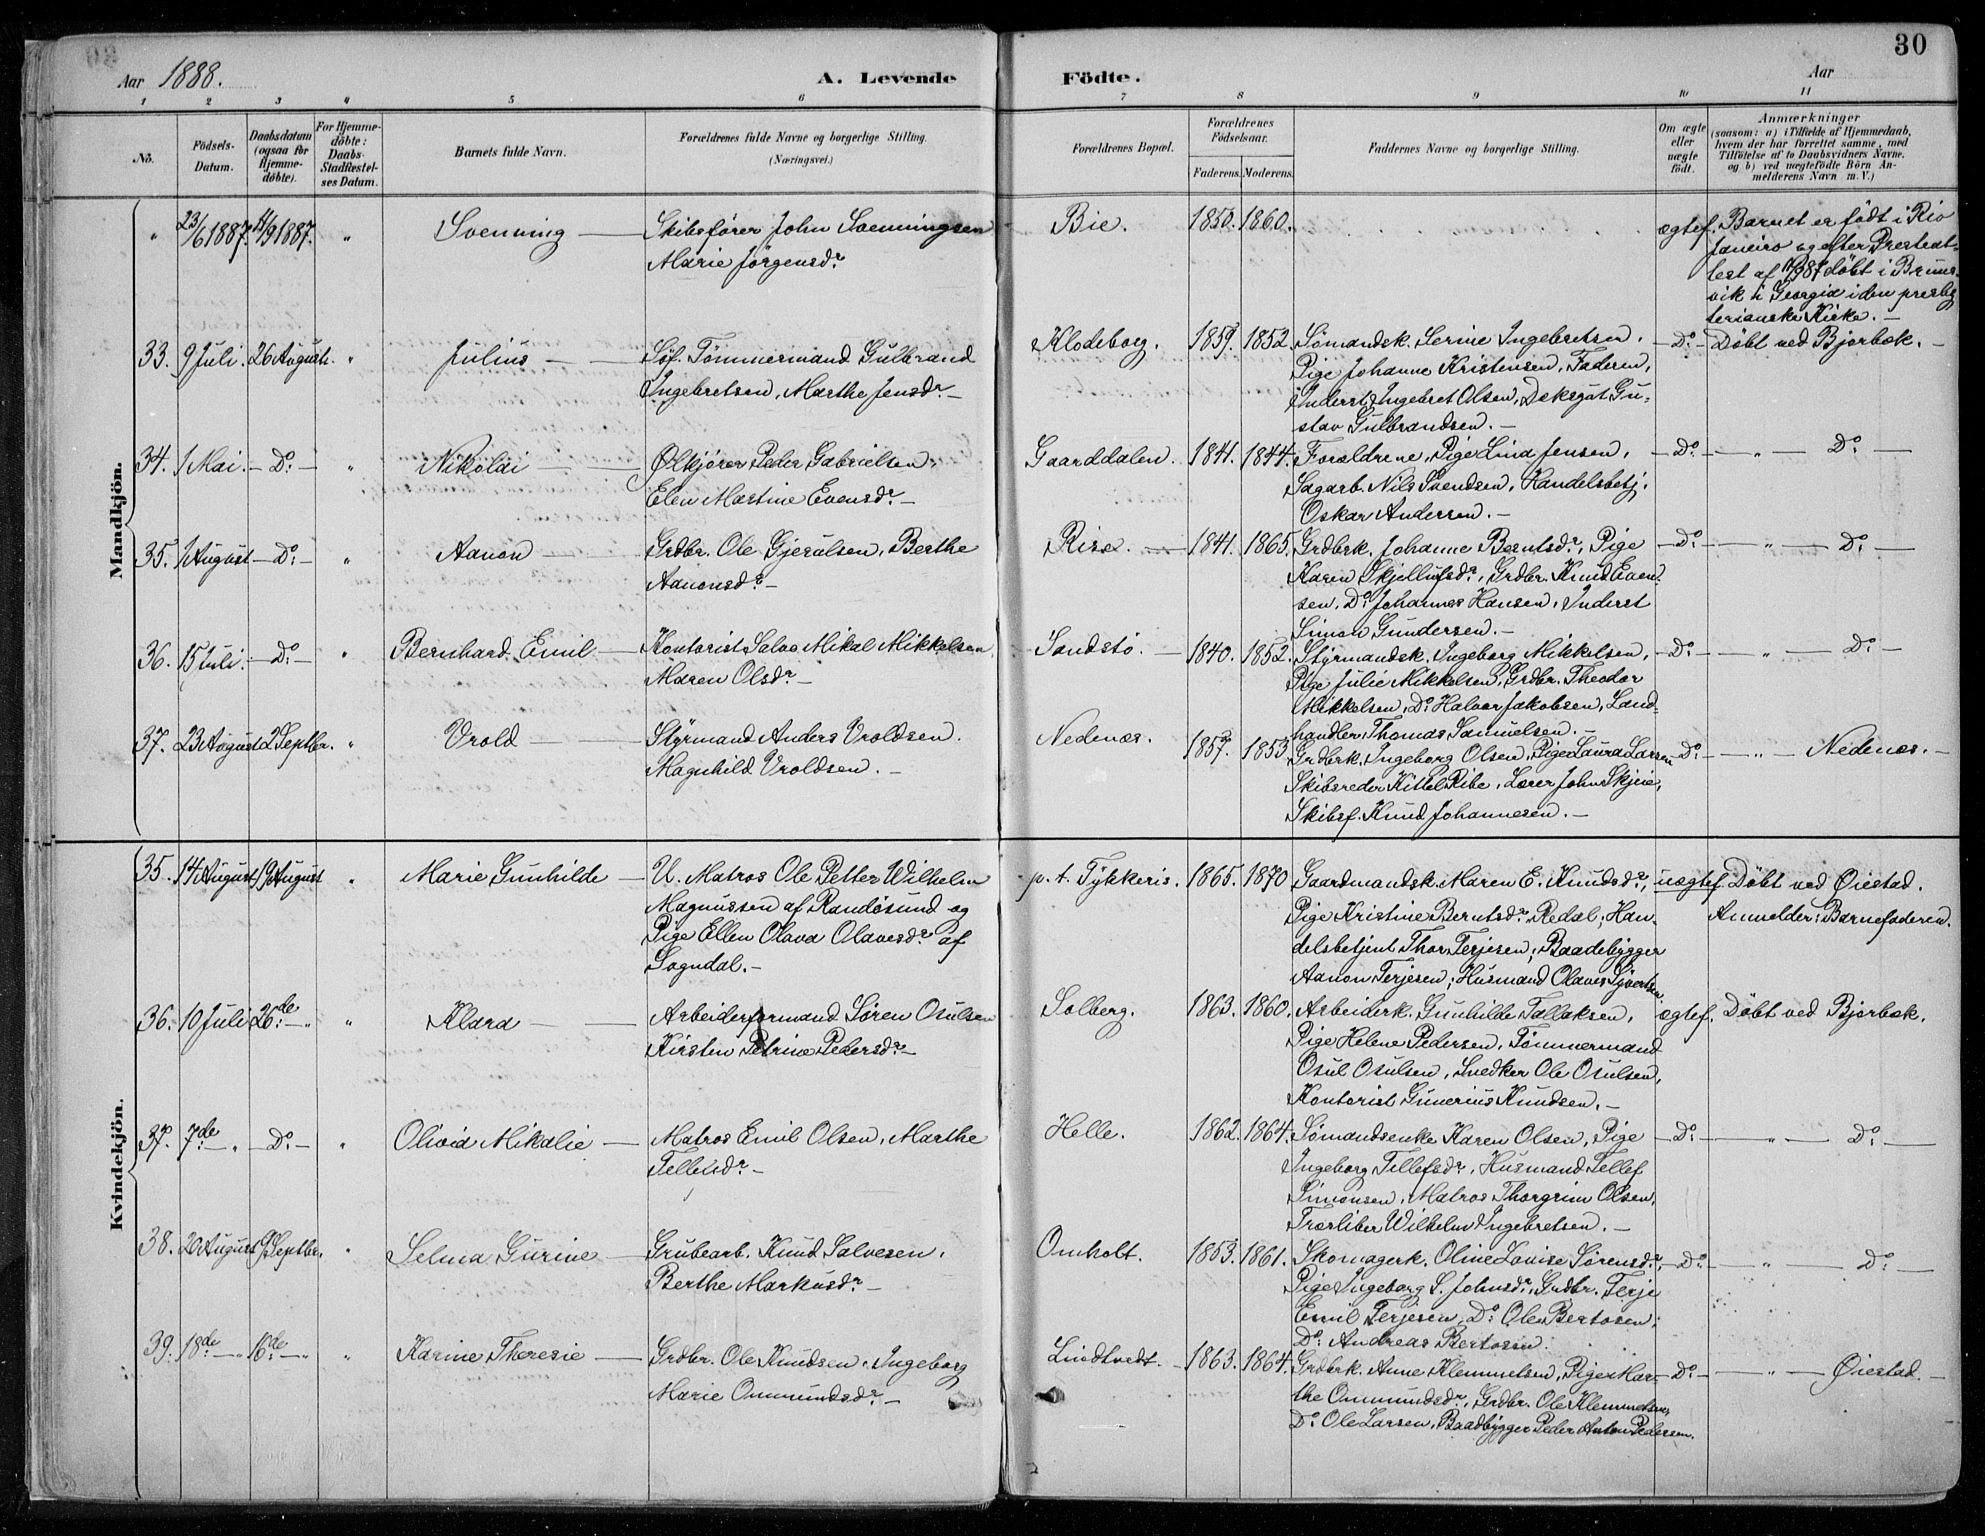 30
Aar 1888. A. Levende Födte. Aar
1 2 3 4 5 6 7 8 9 10 11
No.
Födsels-
Datum.
Daabsdatum
(ogsaa for
Hjemme-
döbte).
For Hjemme-
döbte:
Daabs-
Stadfæstel-
ses Datum.
Barnets fulde Navn.
Forældrenes fulde Navne og borgerlige Stilling.
(Næringsvei.)
Forældrenes Bopæl.
Forældrenes
Födselsaar.
Faderens. Moderens.
Faddernes Navne og borgerlige Stilling.
Om ægte
eller
uægte
födt.
Anmærkninger
(saasom: a) i Tilfælde af Hjemmedaab,
hvem der har forrettet samme, med
Tilföielse af to Daabsvidners Navne,
og b) ved uægtefödte Börn An-
melderens Navn m. V.)
Mandkjön.
" 23/6 1887. 11/9 1887. " Svenning — Skibsfører John Svenningsen
Marie Jörgensdr.
Bie. 1850. 1860. ægtef. Barnet er født i Rio
Janeiro og efter Presteat-
test af 11/9 87 döbt i Bruns-
vik i Georgia i den presby
terianske Kirke. —
33. 9 Juli. 26 August. " Julius — Söf. Tömmermand Gulbrand
Ingebretsen, Marthe Jensdr. —
Klodeborg. 1859. 1852. Sømandsk. Serine Ingebretsen.
Pige Johanne Kristensen, Faderen,
Inderst Ingebret Olsen, Deksgut Gu-
stav Gulbrandsen. —
— Do. — Döbt ved Bjorbæk. —
34. 1 Mai. — Do. — " Nikolai — Ølkjører Peder Gabrielsen.
Elen Martine Evensdr. —
Gaarddalen. 1841. 1844. Forældrene, Pige Lina Jensen,
Sagarb. Nils Svendsen, Handelsbetj.
Oskar Andersen. —
— Do. — " — Do. —
35. 1 August — Do. — " Aanon — Grdbr. Ole Gjerulsen, Berthe
Aanonsdr. —
Rise. — 1841. 1865. Grdbrk. Johanne Berntsdr., Pige
Karen Skjellufsdr., Grdbr. Knud Even-
sen, Do. Johannes Hansen, Inderst
Simon Gundersen. —
— Do. — " — Do. —
36. 15 Juli. — Do. — " Bernhard Emil — Kontorist Salve Mikal Mikkelsen
Maren Olsdr. —
Sandstö. — 1840. 1852. Styrmandsk. Ingeborg Mikkelsen,
Pige Julie Mikkelsen, Grdbr. Theodor
Mikkelsen, Do. Halvor Jakobsen, Land-
handler Thomas Samuelsen. —
— Do. — " — Do. —
37. 23 August 2 Septbr. " Vrold — Styrmand Anders Vroldsen.
Magnhild Vroldsen. —
Nedenæs. 1857. 1853. Grdbrk. Ingeborg Olsen, Pige Laura Larsen
Skibsreder Kittel Ribe, Lærer John Skjeie,
Skibsf. Knud Johannesen. —
— Do. — " — Nedenæs. —
Kvindekjön.
35. 14 August 19 August " Marie Gunhilde — U. Matros Ole Petter Wilhelm
Magnussen af Randøsund og
Pige Ellen Olava Olavesdr. af
Sogndal. —
p. t. Tykkeris. 1865. 1870 Gaardmandsk. Maren E. Knudsdr.,
Pige Kristine Berntsdr. Redal; Han-
delsbetjent Thor Terjesen; Baadebygger
Aanon Terjesen; Husmand Olaves Sjvertsen.
uægtef. Döbt ved Øiestad.
Anmelder: Barnefaderen.
36. 10 Juli 26de — " " Klara — Arbeiderformand Sören Osulsen
Kirsten Petrine Pedersdr. —
Solberg. 1863. 1860. Arbeiderk. Gunhilde Tallaksen,
Pige Helene Pedersen, Tömmermand
Osul Osulsen, Snedker Ole Osulsen,
Kontorist Gunerius Knudsen. —
ægtef. Döbt ved Bjorbæk.
37. 7de — " — Do. — " Olivia Mikalie — Matros Emil Olsen, Marthe
Tellefsdr. —
Helle. 1862. 1864. Sømandsenke Karen Olsen, Pige
Ingeborg Tellefsdr., Husmand Tellef
Simonsen, Matros Thorgrim Olsen,
Træsliber Wilhelm Ingebretsen. —
— Do. — " — Do. —
38. 20 August 9 Septbr. " Selma Gurine — Grubearb. Knud Salvesen.
Berthe Markusdr. —
Omholt. 1853. 1861. Skomagerk. Oline Lovise Sörensdr.,
Pige Ingeborg S. Johnsdr., Grdbr. Terje
Emil Terjesen, Do. Ole Bertosen;
Do. Andreas Bertosen.
— Do. — " — Do. —
39. 18de — " — 16de — " " Karine Theresie — Grdbr. Ole Knudsen, Ingeborg
Marie Ommundsdr. —
Lindtvedt. — 1863. 1864. Grdbrk. Anne Klemmetsen, Pige Mar-
the Ommundsdr., Grdbr. Ole Klemmetsen,
Do. Ole Larsen, Baadbygger Peder Anton Pedersen.
— Do. — " — Øiestad. —